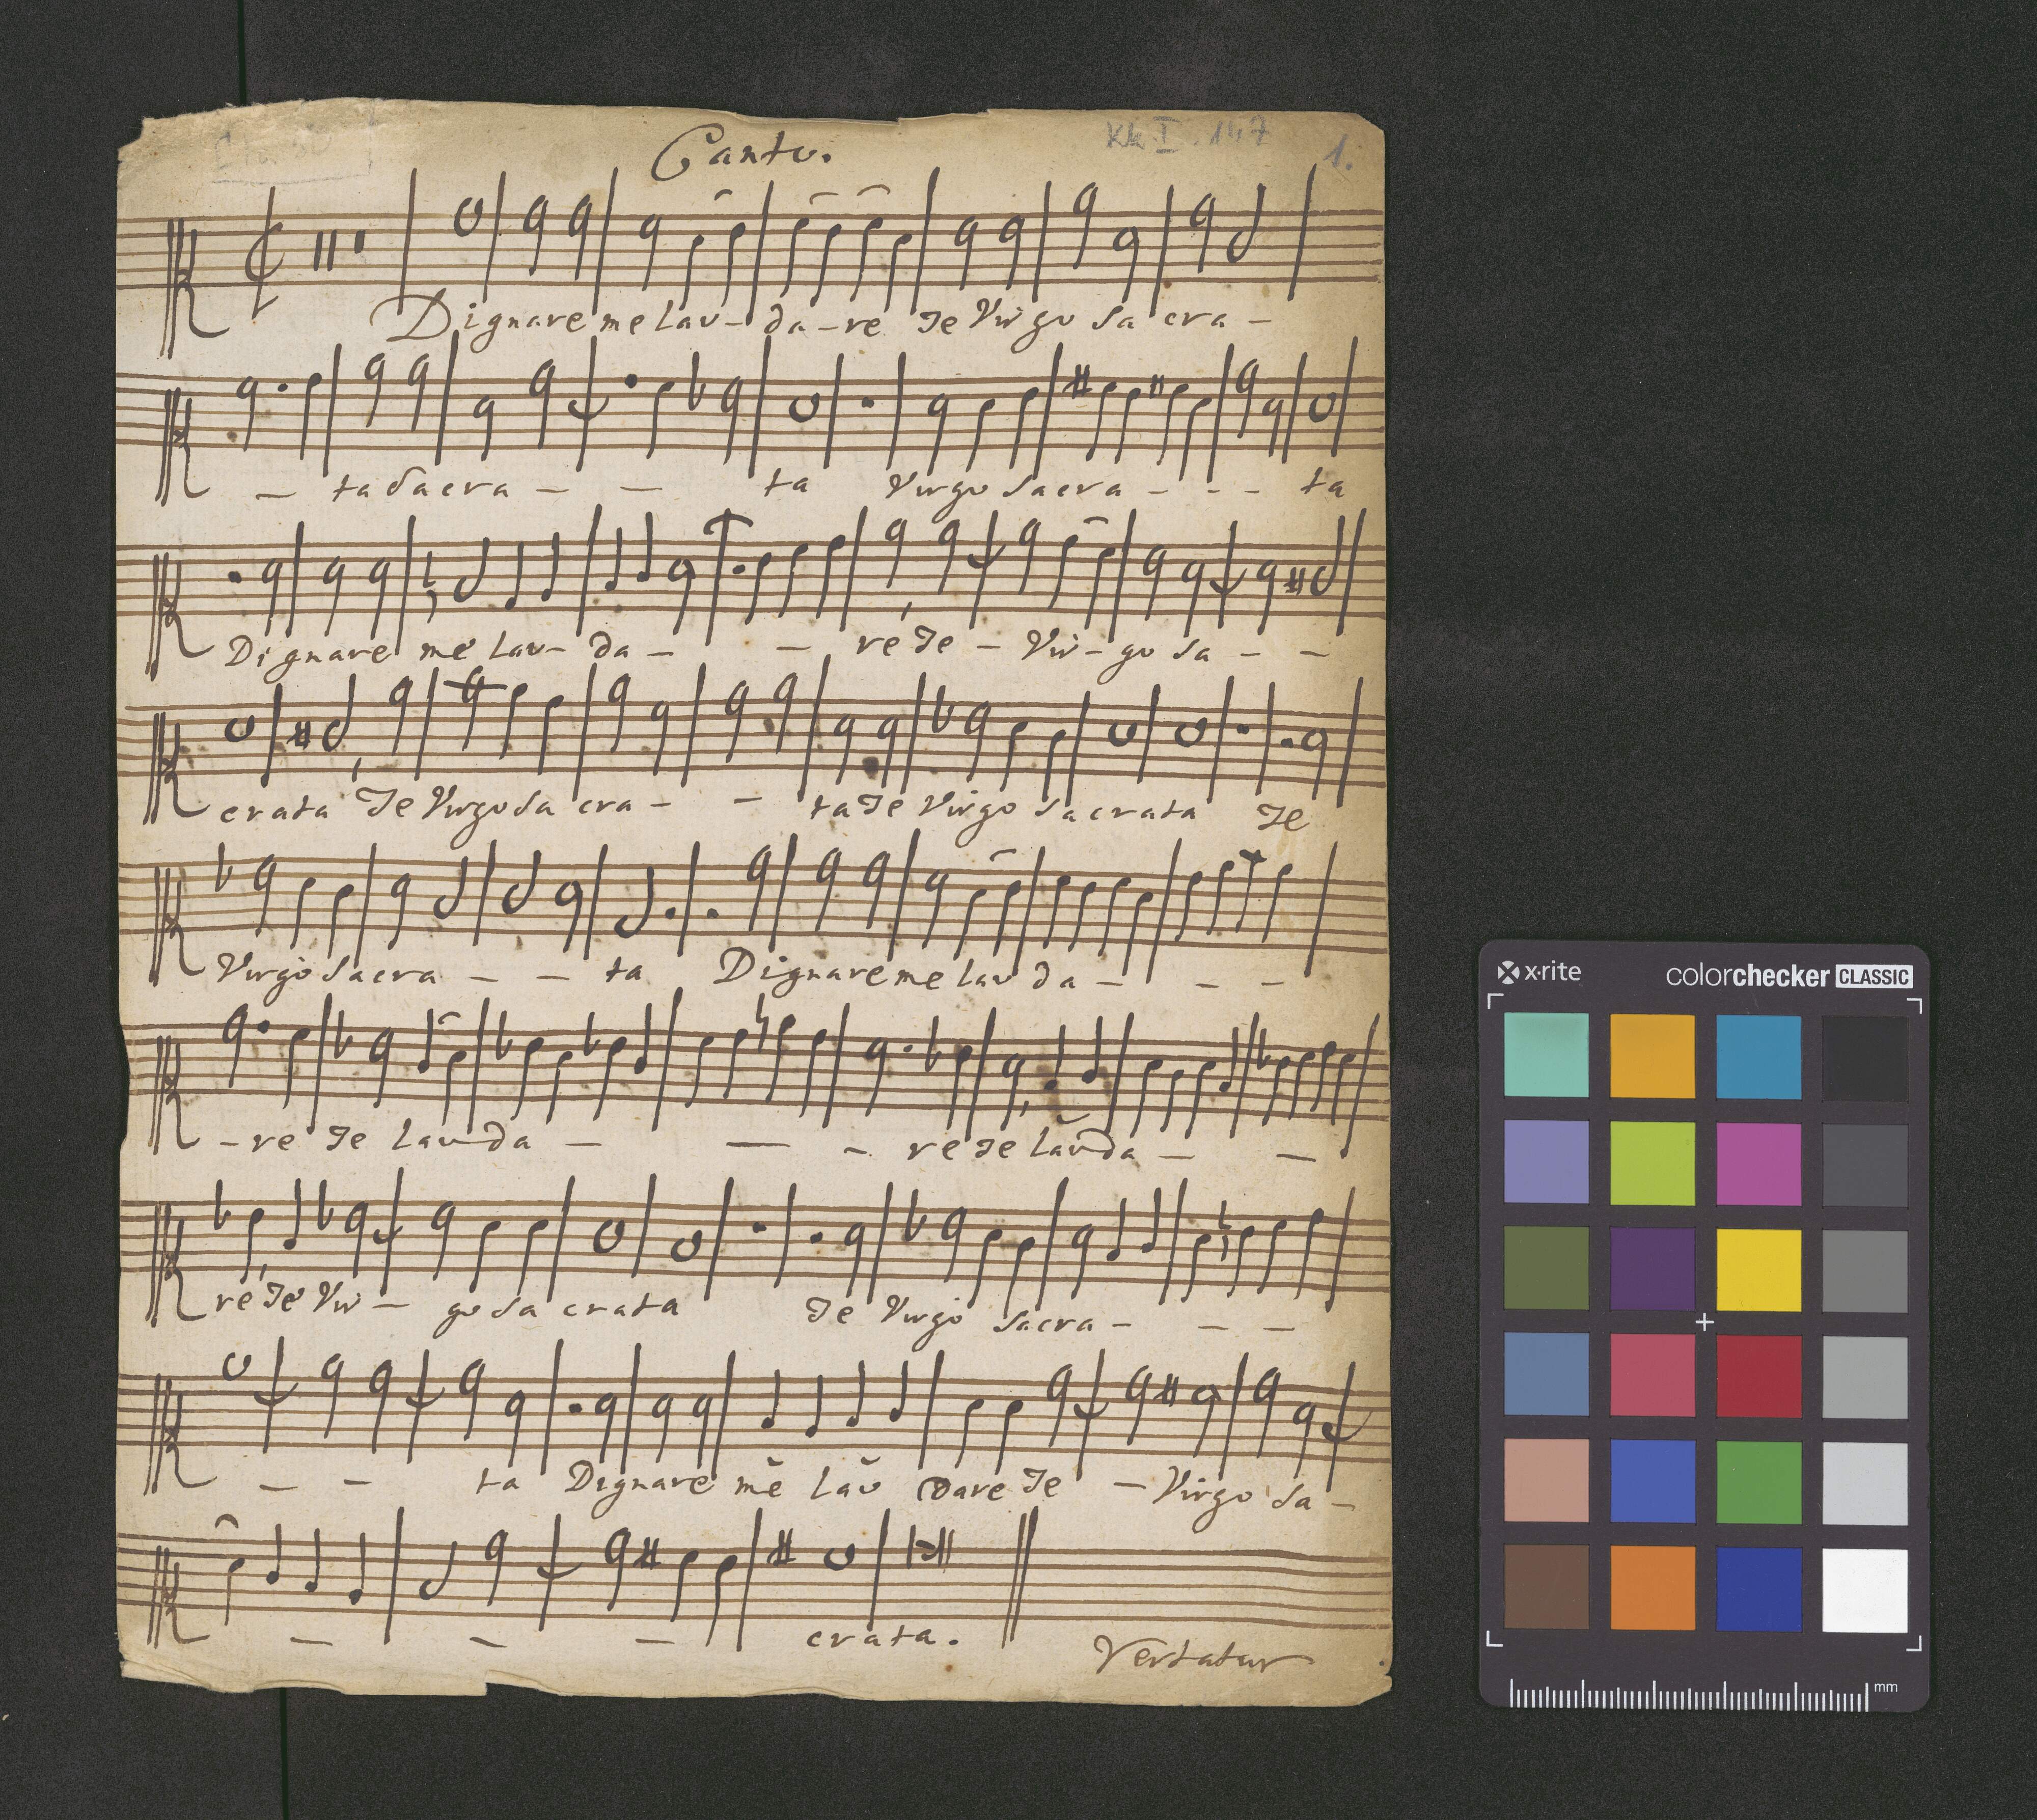 Canto.
Kk I. 147
1.
Dignare me lau - da - re Te Virgo Sa cra -
- ta Sacra - - ta Virgo Sacra - - - ta
Dignare me Lau - da - - re Te - Vir - go Sa - -
crata Te Virgo Sa cra - - ta Te Virgo Sacrata Te
Virgo Sacra - - ta Dignare me lau da - - -
- re Te Lauda - - - re Te Lauda - -
re Te Vir - go Sa crata Te Virgo Sacra - - -
- - ta Dignare me Lau Dare Te - Virgo Sa -
- - - crata.
Vertatur
x·rite colorchecker CLASSIC
mm